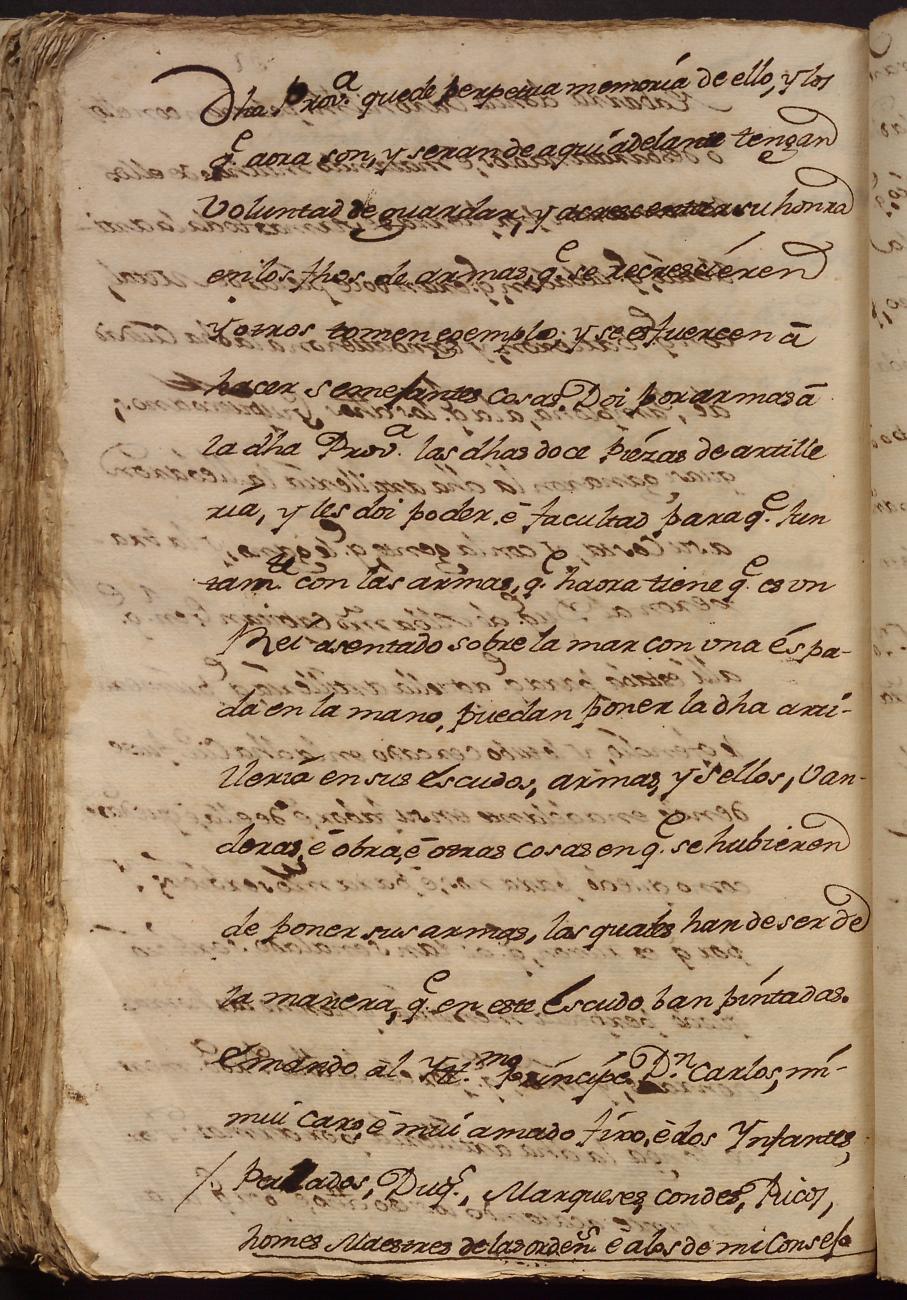 Dha Prov.ª quede perpetua memoria de ello, y los
q.e aora son, y seran de aqui adelante tengan
Voluntad de guardar, y acrescentar su honra
en los fhos de armas, q.e se recrescieren
y otros tomen egemplo, y se esfuercen â
hacer semejantes cosas Doi por armas â
la dha Prov.ª las dhas doce Piezas de artille
ria, y les doi poder, ê facultad para q.e Jun
tam.te con las armas, q.e haora tiene q.e es vn
Rei asentado sobre la mar con vna espa-
da en la mano, puedan poner la dha arti-
lleria en sus Escudos, armas, y Sellos, Van-
deras, ê obra, ê otras cosas en q.e se hubieren
de poner sus armas, las quales han de ser de
la manera, q.e en este Escudo ban pintadas.
E mando al Yll.mo Principe D.n Carlos, mi-
mui caro, ê mui amado fixo, ê dos Ynfantes,
/ Perlados, Duq.s, Marqueses, condes, Ricos,
homes Maestres de las orden.s e a los de mi Consejo